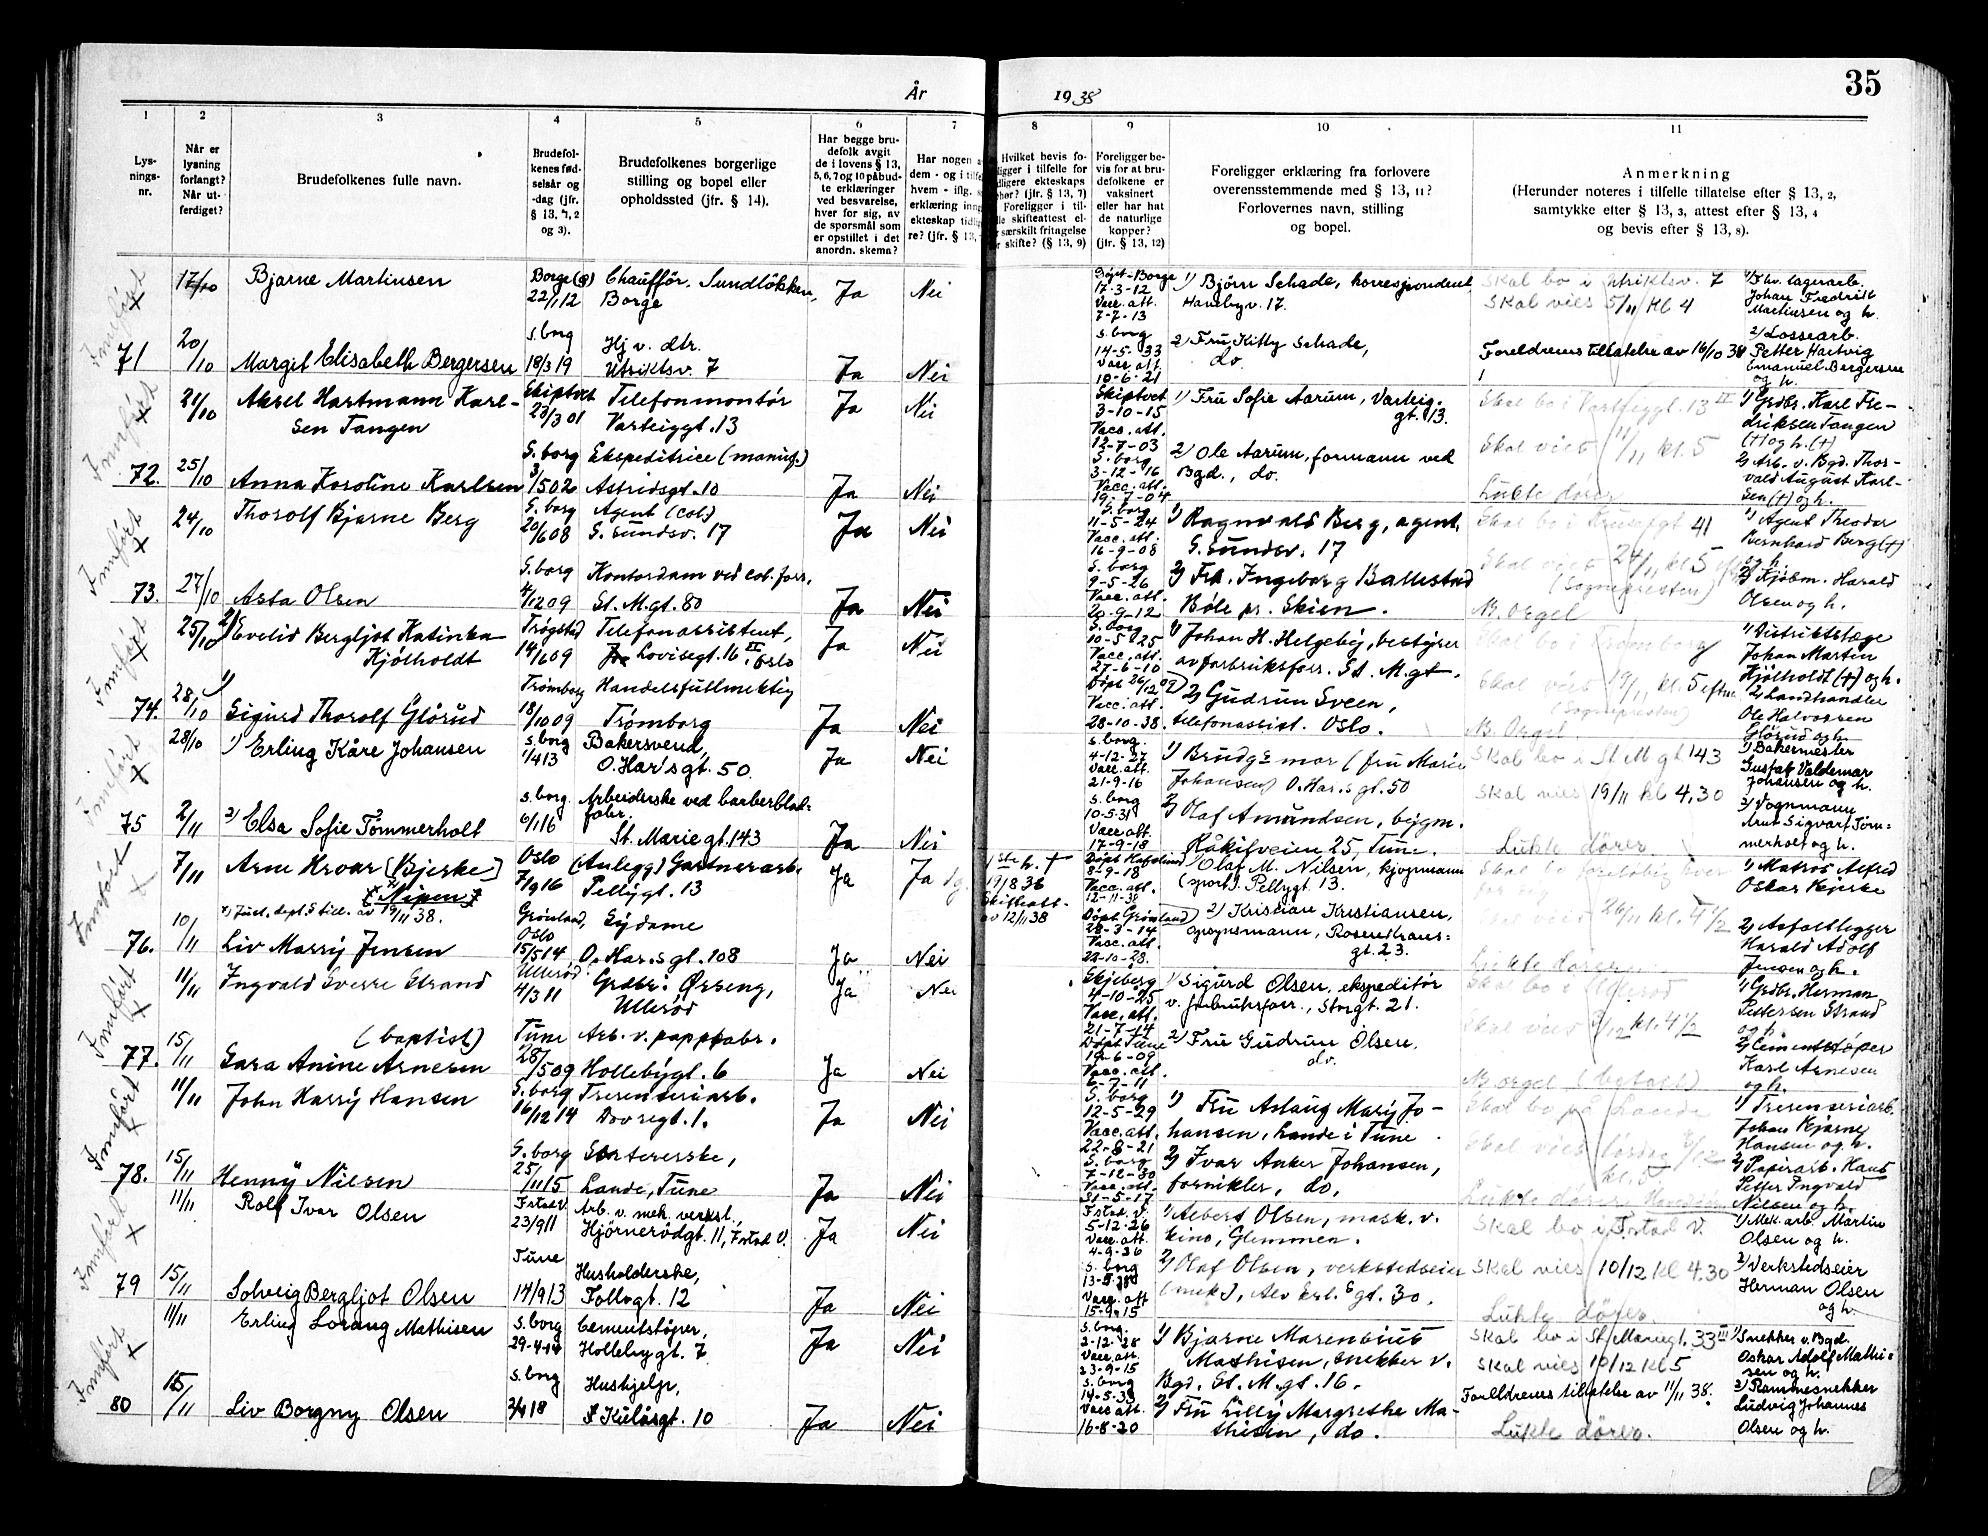 35
År 1938
1
2
3
4
5
6
7
8
9
10
11
Lys-
nings-
nr.
Når er
lysning
forlangt?
Når ut-
ferdiget?
Brudefolkenes fulle navn.
Brudefol-
kenes fød-
selsår og
-dag (jfr.
§ 13, 1, 2
og 3).
Brudefolkenes borgerlige
stilling og bopel eller
opholdssted (jfr. § 14).
Har begge bru-
defolk avgit
de i lovens § 13,
5, 6, 7 og 10 påbud-
te erklæringer
ved besvarelse,
hver for sig, av
de spørsmål som
er opstillet i det
anordn. skema?
Har nogen a
dem - og i tilfe
hvem - iflg. s
erklæring inng
ekteskap tidlig
re? (jfr. § 13,
Hvilket bevis fo-
ligger i tilfelle for
dligere ekteskaps
phør? (jfr. § 13, 7)
Foreligger i til-
lle skifteattest el-
r særskilt fritagelse
r skifte? (§ 13, 9)
Foreligger be-
vis for at bru-
defolkene er
vaksinert
eller har hat
de naturlige
kopper?
(jfr. § 13, 12)
Foreligger erklæring fra forlovere
overensstemmende med § 13, 11?
Forlovernes navn, stilling
og bopel.
Anmerkning
(Herunder noteres i tilfelle tillatelse efter § 13, 2,
samtykke efter § 13, 3, attest efter § 13, 4
og bevis efter § 13, 8).
Innført x
17/10
Bjarne Martinsen
Borge (Ø)
22/1 12
Chauffør. Sundløkken,
Borge
Ja
Nei
Døpt-Borge
17-3-12
Vacc. att.
7-7-13
1) Bjørn Schade, korrespondent
Haneby v. 17.
Skal bo i Utriksv. 7
Skal vies 5/11 kl 4
1) Fhv. lagerarb.
Johan Fredrik
Martinsen og h.
71
20/10
Margit Elisabeth Bergersen
S.borg
18/3 19
Hj v. dtr.
Utriksv. 7
Ja
Nei
S.borg
14-5-33
Vacc. att.
10-6-21
2) Fru Kitty Schade,
do.
Foreldrenes tillatelse av 16/10 38
2) Lossearb.
Petter Hartvig
Emanuel Bergersen
og h.
Innført x
21/10
Aksel Hartmann Karl-
sen Tangen
Skiptvet
23/3 01
Telefonmontør
Varteiggt. 13
Ja
Nei
Skiptvet
3-10-15
Vacc. att.
12-7-03
1) Fru Sofie Aarum, Varteig-
gt. 13.
Skal bo i Varteiggt. 13 II
Skal vies 11/11 kl. 5
1) Grdbr. Karl Fre-
driksen Tangen
(+) og h. (+)
72.
25/10
Anna Karoline Karlsen
S.borg
3/5 02
Ekspeditrice (manuf.)
Astridsgt. 10
Ja
Nei
S.borg
3-12-16
Vacc. att.
19-7-04
2) Ole Aarum, formann ved
Bgd., do.
Lukte dører
2) Arb. v. Bgd. Thor-
vald August Karl-
sen (+) og h.
Innført x
24/10
Thorolf Bjarne Berg
S.borg
20/6 08
Agent (col)
G. Sundsv. 17
Ja
Nei
S.borg
11-5-24
Vacc. att.
16-9-08
1) Ragnvald Berg, agent,
G. Sundsv. 17
Skal bo i Kruses gt 41
Skal vies 24/11 kl 5 eft
(Sognepresten)
1) Agent Theodor
Bernhard Berg (+)
og h.
73.
27/10
Asta Olsen
S.borg
4/12 09
Kontordam ved col. forr.
St. M. gt. 80
Ja
Nei
S.borg
9-5-26
Vacc. att.
20-9-12
2) Frk. Ingeborg Ballestad
Bøle pr. Skien.
M. Orgel
2) Kjøbm. Harald
Olsen og h.
Innført x
25/10
2) Evelid Bergljot Katinka
Kjølholdt
Trøgstad
14/6 09
Telefonassistent,
Lovisegt. 16 II, Oslo
Ja
Nei
S.borg
10-5-25
Vacc. att.
27-6-10
1) Johan H. Helgeby, bestyrer
av forbruksforr. St. M. gt.
Skal bo i Trømborg
Skal vies 19/11 kl. 5 eftm
(Sognepresten)
1) Distriktslæge
Johan Martin
Kjølholdt (+) og h.
74.
28/10
1)
Sigurd Thorolf Glørud
Trømborg
18/10 09
Handelsfullmektig
Trømborg
Ja
Nei
Døpt 26/12 09
Vacc. att.
28-10-38
2) Gudrun Sveen,
telefonassist. Oslo.
M. Orgel.
2) Landhandler
Ole Halvorsen
Glørud og h.
Innført x
28/10
1) Erling Kåre Johansen
S.borg
1/4 13
Bakersvend,
O. Har's gt. 50
Ja
Nei
S.borg.
4-12-27
Vacc. att.
21-9-16
1) Brudg.s mor (fru Marie
Johansen) O. Har.s gt. 50
Skal bo i St M gt 143
Skal vies 19/11 kl 4.30
1) Bakermester
Gustaf Valdemar
Johansen og h.
75
2/11
2) Elsa Sofie Tømmerholt
S.borg.
6/1 16
Arbeiderske ved barberblad-
fabr.
St. Marie gt. 143
Ja
Nei
S.borg
10-5-31
Vacc. att.
17-9-18
2) Olaf Amundsen, bygm.
Råkilveien 25, Tune.
Lukte dører.
2) Vognmann
Arnt Sigvart Tøm-
merholt og h.
Innført x
7/11
Arne Hroar (Bjerke)
Nipen
x) Just. dept.s till. av 19/11 38.
Oslo
7/9 16
(Anlegg) Gartnerarb.
Pellygt. 13
Ja
Ja
1ste h. +
19/8 36
Skifteatt-
av 12/11 38
8-9-18
Vacc. att.
12-11-38
1) Olaf M. Nilsen, kjøpmann
(sport). Pellygt. 13.
Skal bo foreløbig hver
for sig
Skal vies 26/11 kl. 4 1/2
1) Matros Alfred
Oskar Bjerke
76.
10/11
Liv Marry Jensen
Grønland,
Oslo
15/5 14
Sydame
O. Har.s gt. 108
Ja
Nei
Døpt Grønland
28-3-14
Vacc. att.
22-10-23.
2) Kristian Kristiansen,
opsynsmann, Rosenkrans-
gt. 23.
Lukte dører
2) Asfaltlegger
Harald Adolf
Jensen og h.
Innført x
11/11
Ingvald Sverre Strand
(baptist)
Ullerød
4/3 11
Grdbr. Ørseng,
Ullerød
Ja
Nei
Skjeberg
4-10-25
Vacc. att.
21-7-14
1) Sigurd Olsen, ekspeditør
v. forbruksforr., Storgt. 21.
Skal bo i Ullerød
Skal vies 3/12 kl. 4 1/2
1) Grdbr. Herman
Pettersen Strand
og h.
77.
15/11
Sara Anine Arnesen
Tune
28/5 09
Arb. v. pappfabr.
Hollebygt. 6
Ja
Nei
Døpt Tune
19-6-09
Vacc. att.
6-7-11
2) Fru Gudrun Olsen,
do.
M. orgel (betalt)
2) Cementstøper
Karl Arnesen
og h.
Innført x
11/11
John Harry Hansen
S.borg
16/12 14
Tresenseriarb.
Dovregt. 1.
Ja
Nei
S.borg
12-5-29
Vacc. att.
22-8-21
1) Fru Aslaug Mary Jo-
hansen, Lande i Tune
Skal bo på Lande
Skal vies lørdag 3/12
kl. 5
1) Tresenseriarb.
Johan Bjarne
Hansen og h.
78.
15/11
Henny Nilsen
S.borg
25/11 15
Sortererske,
Lande, Tune
Ja
Nei
S.borg
7-12-30
Vacc. att.
31-5-17
2) Ivar Anker Johansen,
fornikler, do.
Lukte dører
2) Papirarb. Hans
Petter Ingvald
Nilsen og h.
Innført x
11/11
Rolf Ivar Olsen
F.stad V.
23/9 11
Arb. v. mek. verkst.,
Hjørnerødgt. 11, F.stad V.
Ja
Nei
F.stad. V.
5-12-26
Vacc. att.
4-9-36
1) Albert Olsen, mask. v.
kino, Glemmen.
Skal bo i F.stad V.
Skal vies 10/12 kl 4.30
1) Mek. arb. Martin
Olsen og h.
79
15/11
Solveig Bergljot Olsen
Tune
17/9 13
Husholderske,
Tollvgt. 12
Ja
Nei
S.borg
Vacc. att
15-9-15
2) Olaf Olsen, verkstedseier
(mek), Alv Erl.s gt. 30.
Lukte dører
2) Verkstedseier
Herman Olsen
og h.
Innført x
11/11
Erling Lorang Mathisen
S.borg
29-4-14
Cementstøper,
Hollebygt. 7
Ja
Nei
S.borg.
2-12-28
Vacc. att.
23-9-15
1) Bjarne Marensius
Mathisen, snekker v.
Bgd. St. M. gt. 16.
Skal bo i St Mariegt. 33 III
Skal vies 10/12 kl 5
1) Snekker v. Bgd.
Oskar Adolf Mathi-
sen og h.
80
15/11
Liv Borgny Olsen
S.borg
Hushjelp,
Kulåsgt. 10
Ja
Nei
S.borg
14-5-33
Vacc att.
16-8-20
2) Fru Lilly Margrethe Ma-
thisen, do.
Foreldrenes tillatelse av 11/11 38.
Lukte dører.
2) Rammesnekker
Ludvig Johannes
Olsen og h.